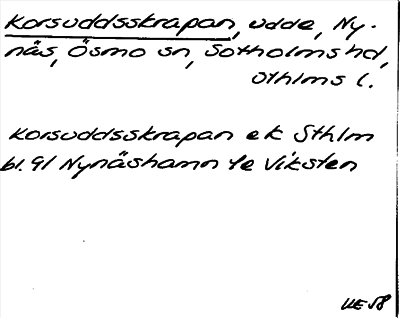 Korsuddsskrapan, udde, Ny-
näs, Ösmo sn, Sotholms hd,
Sthlms l.
Korsuddsskrapan ek Sthlm
bl. 91 Nynäshamn te Viksten